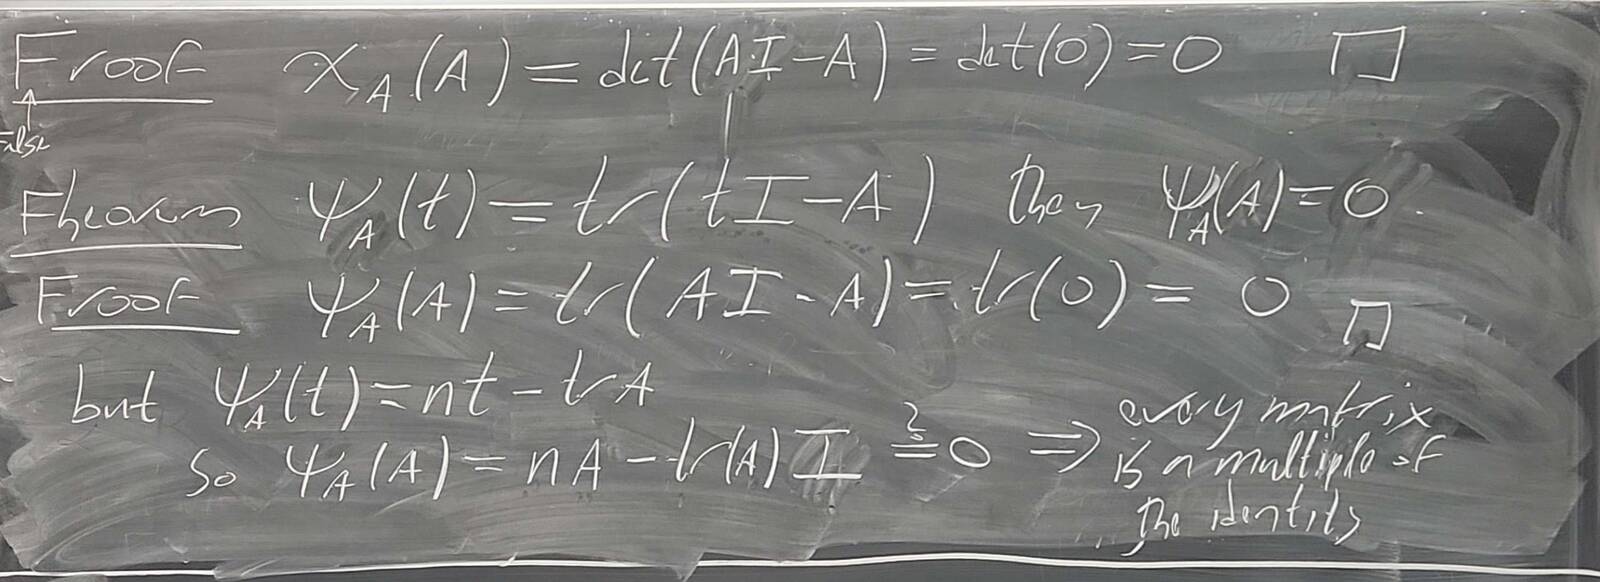 Froof χ_A(A) = det(AI-A) = det(0) = 0 □
False
Fheorem Ψ_A(t) = tr(tI-A) then Ψ_A(A) = 0.
Froof Ψ_A(A) = tr(AI-A) = tr(0) = 0 □
but Ψ_A(t) = nt - trA
so Ψ_A(A) = nA - tr(A)I ?= 0 ⇒ every matrix
is a multiple of
the identity